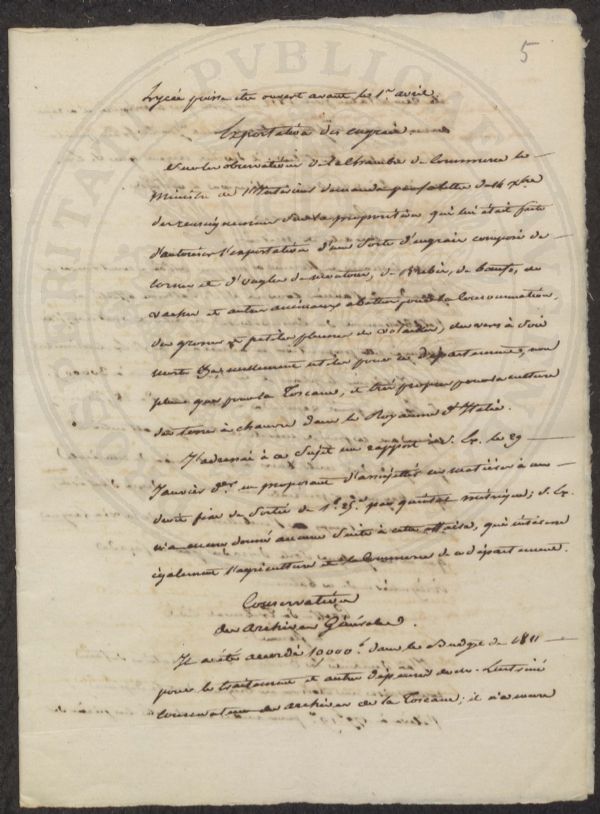 5
Lycée puisse être ouvert avant le 1er avril.
Exportation des engrais
Sur les observations de la Chambre de Commerce le
Ministre de l'Intérieur demanda par sa lettre du 4 xbre
des renseignemens sur la proposition qui lui était faite
d'autoriser l'exportation d'une sorte d'engrais composé de
cornes et d'ongles de moutons, de brebis, de bœufs, de
vaches et autres animaux abattus pour la consommation,
de grosses & petites plumes de volailles, des vers à soie
morts & seulement utiles pour ce département, non
plus que pour la Toscane, et très propres pour la culture
des terres à chanvre dans le Royaume d'Italie.
J'adressai à ce sujet un rapport à S. Ex. le 29
Janvier der en proposant d'assujettir ces matières à un
droit fixe de sortie de 1f 25c par quintal métrique; S. Ex.
n'a encore donné aucune suite à cette affaire, qui intéresse
également l'agriculture et le Commerce de ce département.
Conservation
des Archives Générales.
Il a été accordé 10000f dans le Budget de 1811
pour le traitement et autres dépenses de Mr
conservateur des archives de la Toscane; il n'a encore